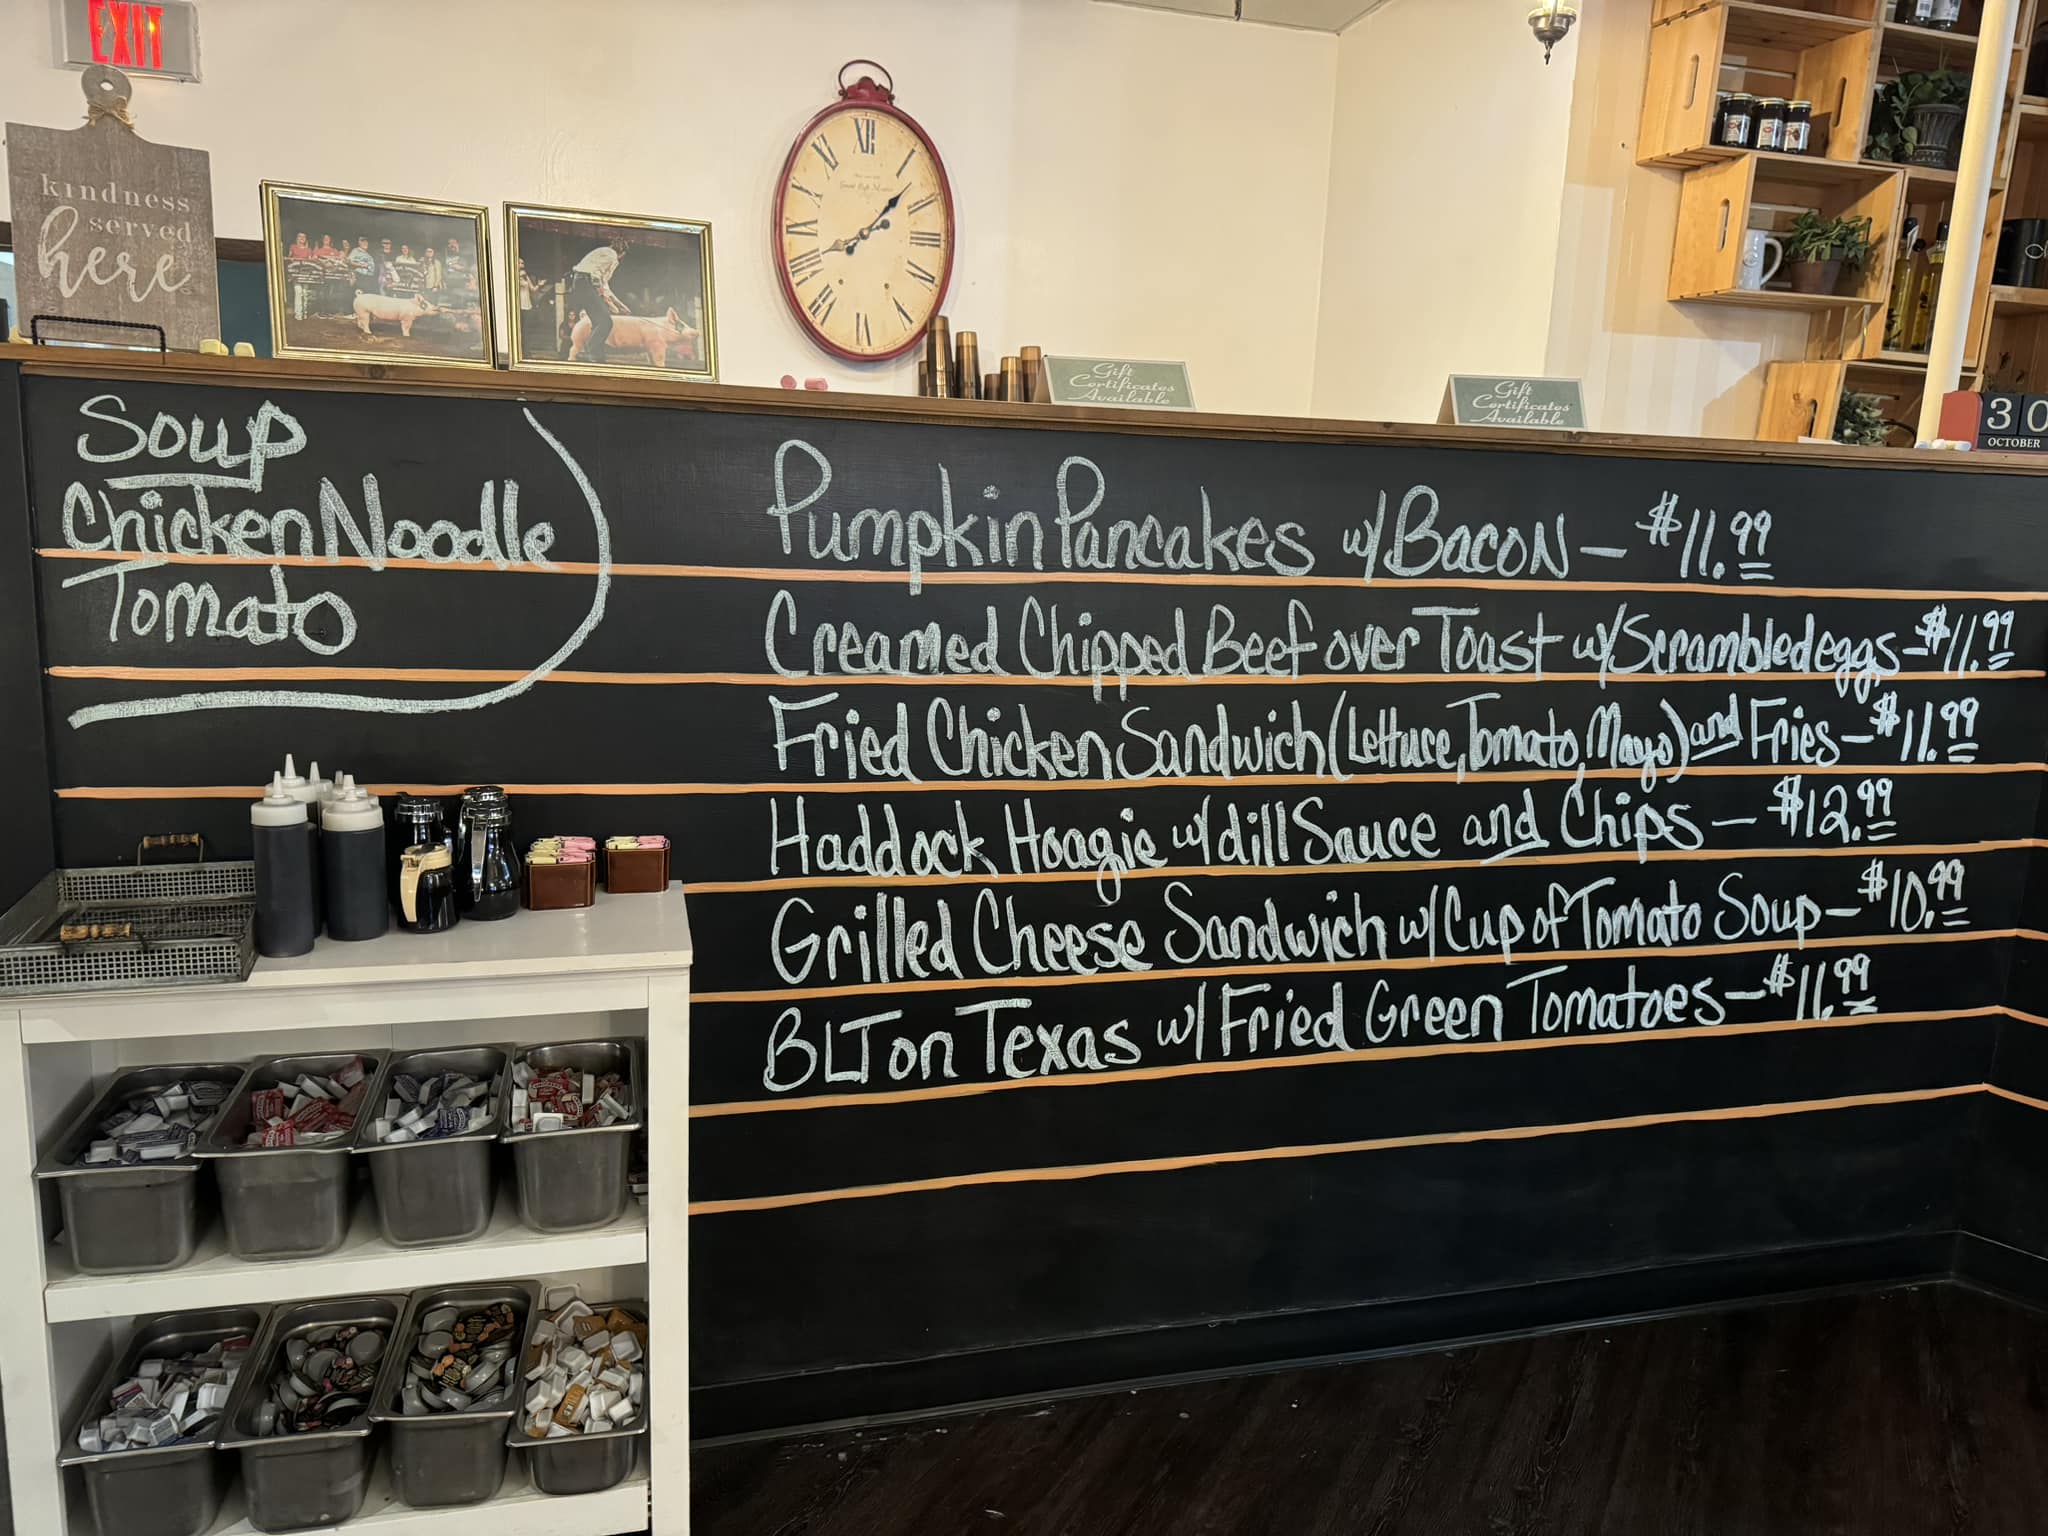 EXIT
kindness
served
here
XII
Gift
Certificates
Available
Gift
Certificates
Available
30
OCTOBER
Soup
Chicken Noodle
Tomato
Pumpkin Pancakes w/ Bacon — $11.99
Creamed Chipped Beef over Toast w/ Scrambled eggs — $11.99
Fried Chicken Sandwich (Lettuce, Tomato, Mayo) and Fries — $11.99
Haddock Hoagie w/ dill Sauce and Chips — $12.99
Grilled Cheese Sandwich w/ Cup of Tomato Soup — $10.99
BLT on Texas w/ Fried Green Tomatoes — $11.99